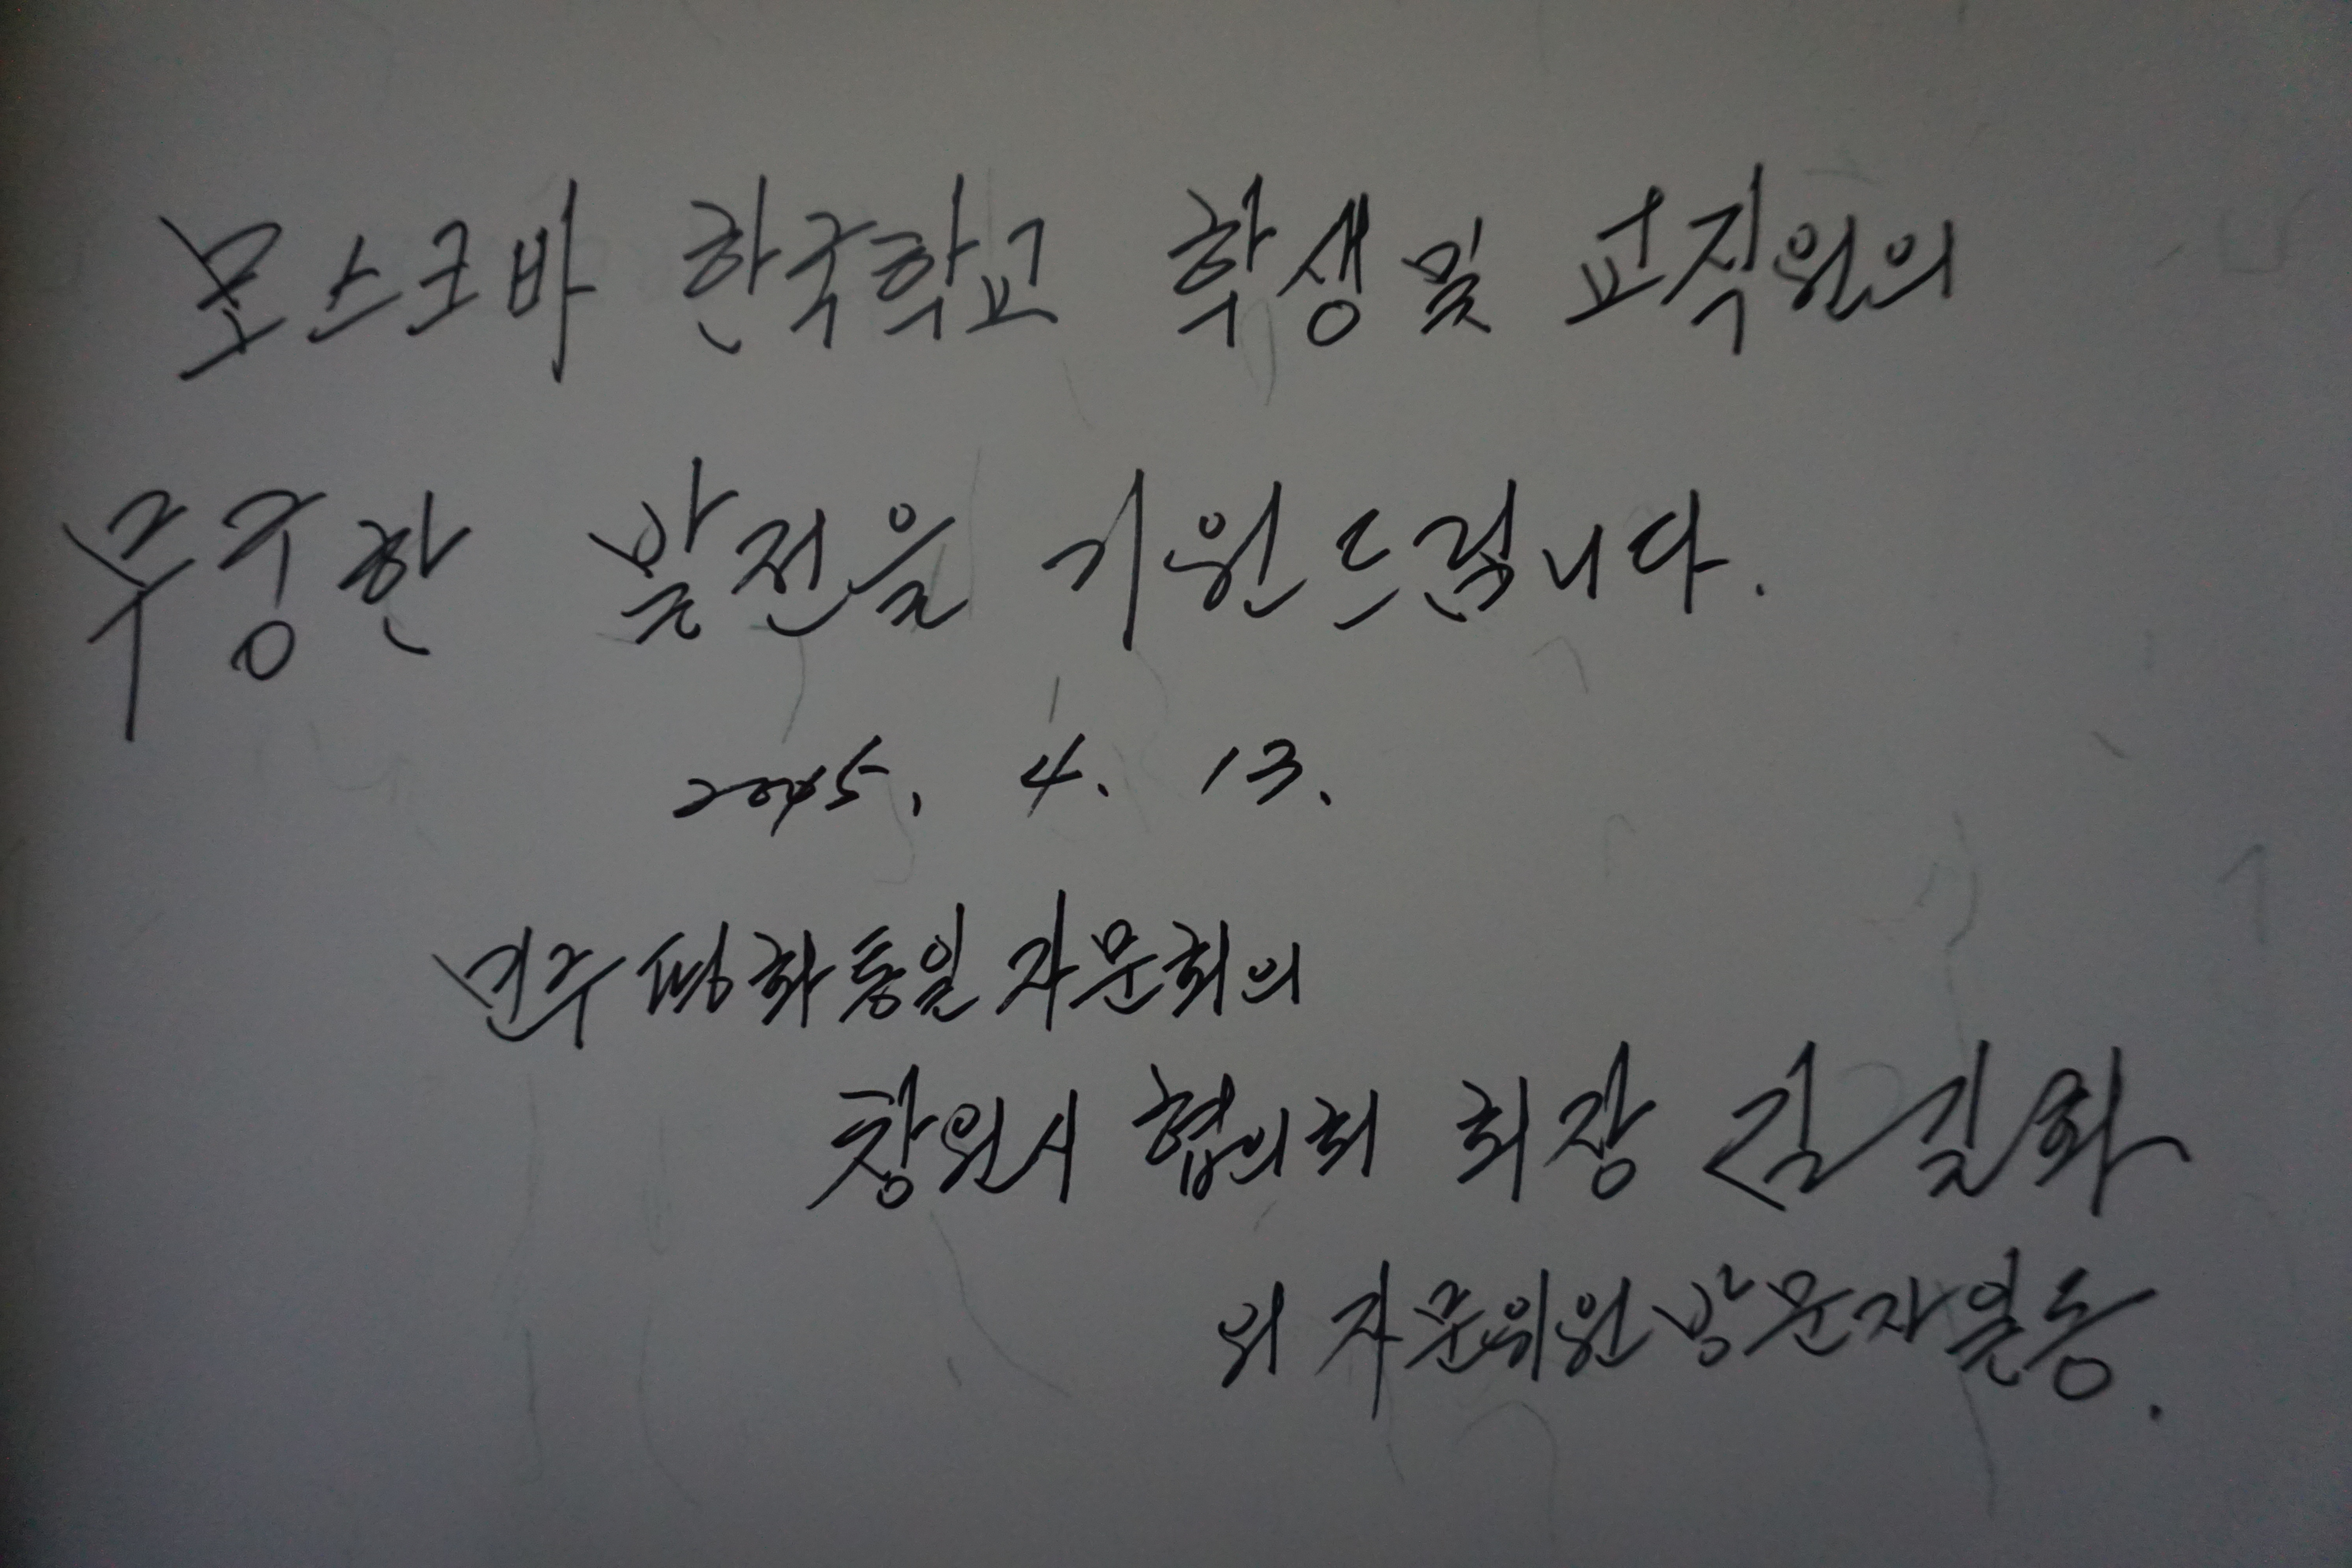 모스크바 한국학교 학생 및 교직원의
무궁한 발전을 기원드립니다.
2015. 4. 13.
민주평화통일자문회의
창원시 협의회 회장 김길화
외 자문위원 방문자일동.